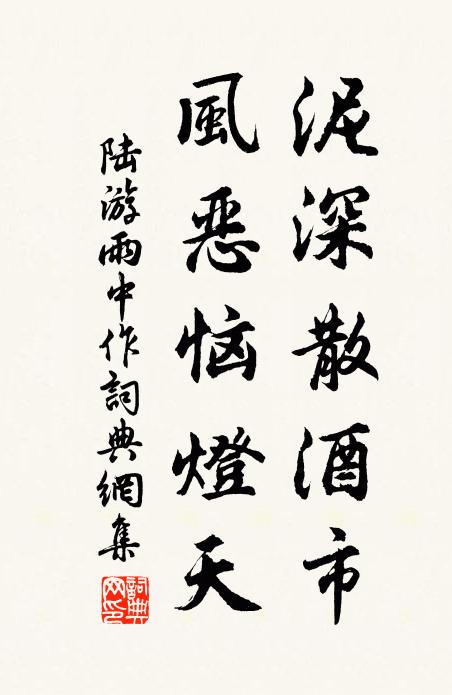 泥深散酒市
風恶恼燈天
陆游雨中作詞典網集
詞典
网印